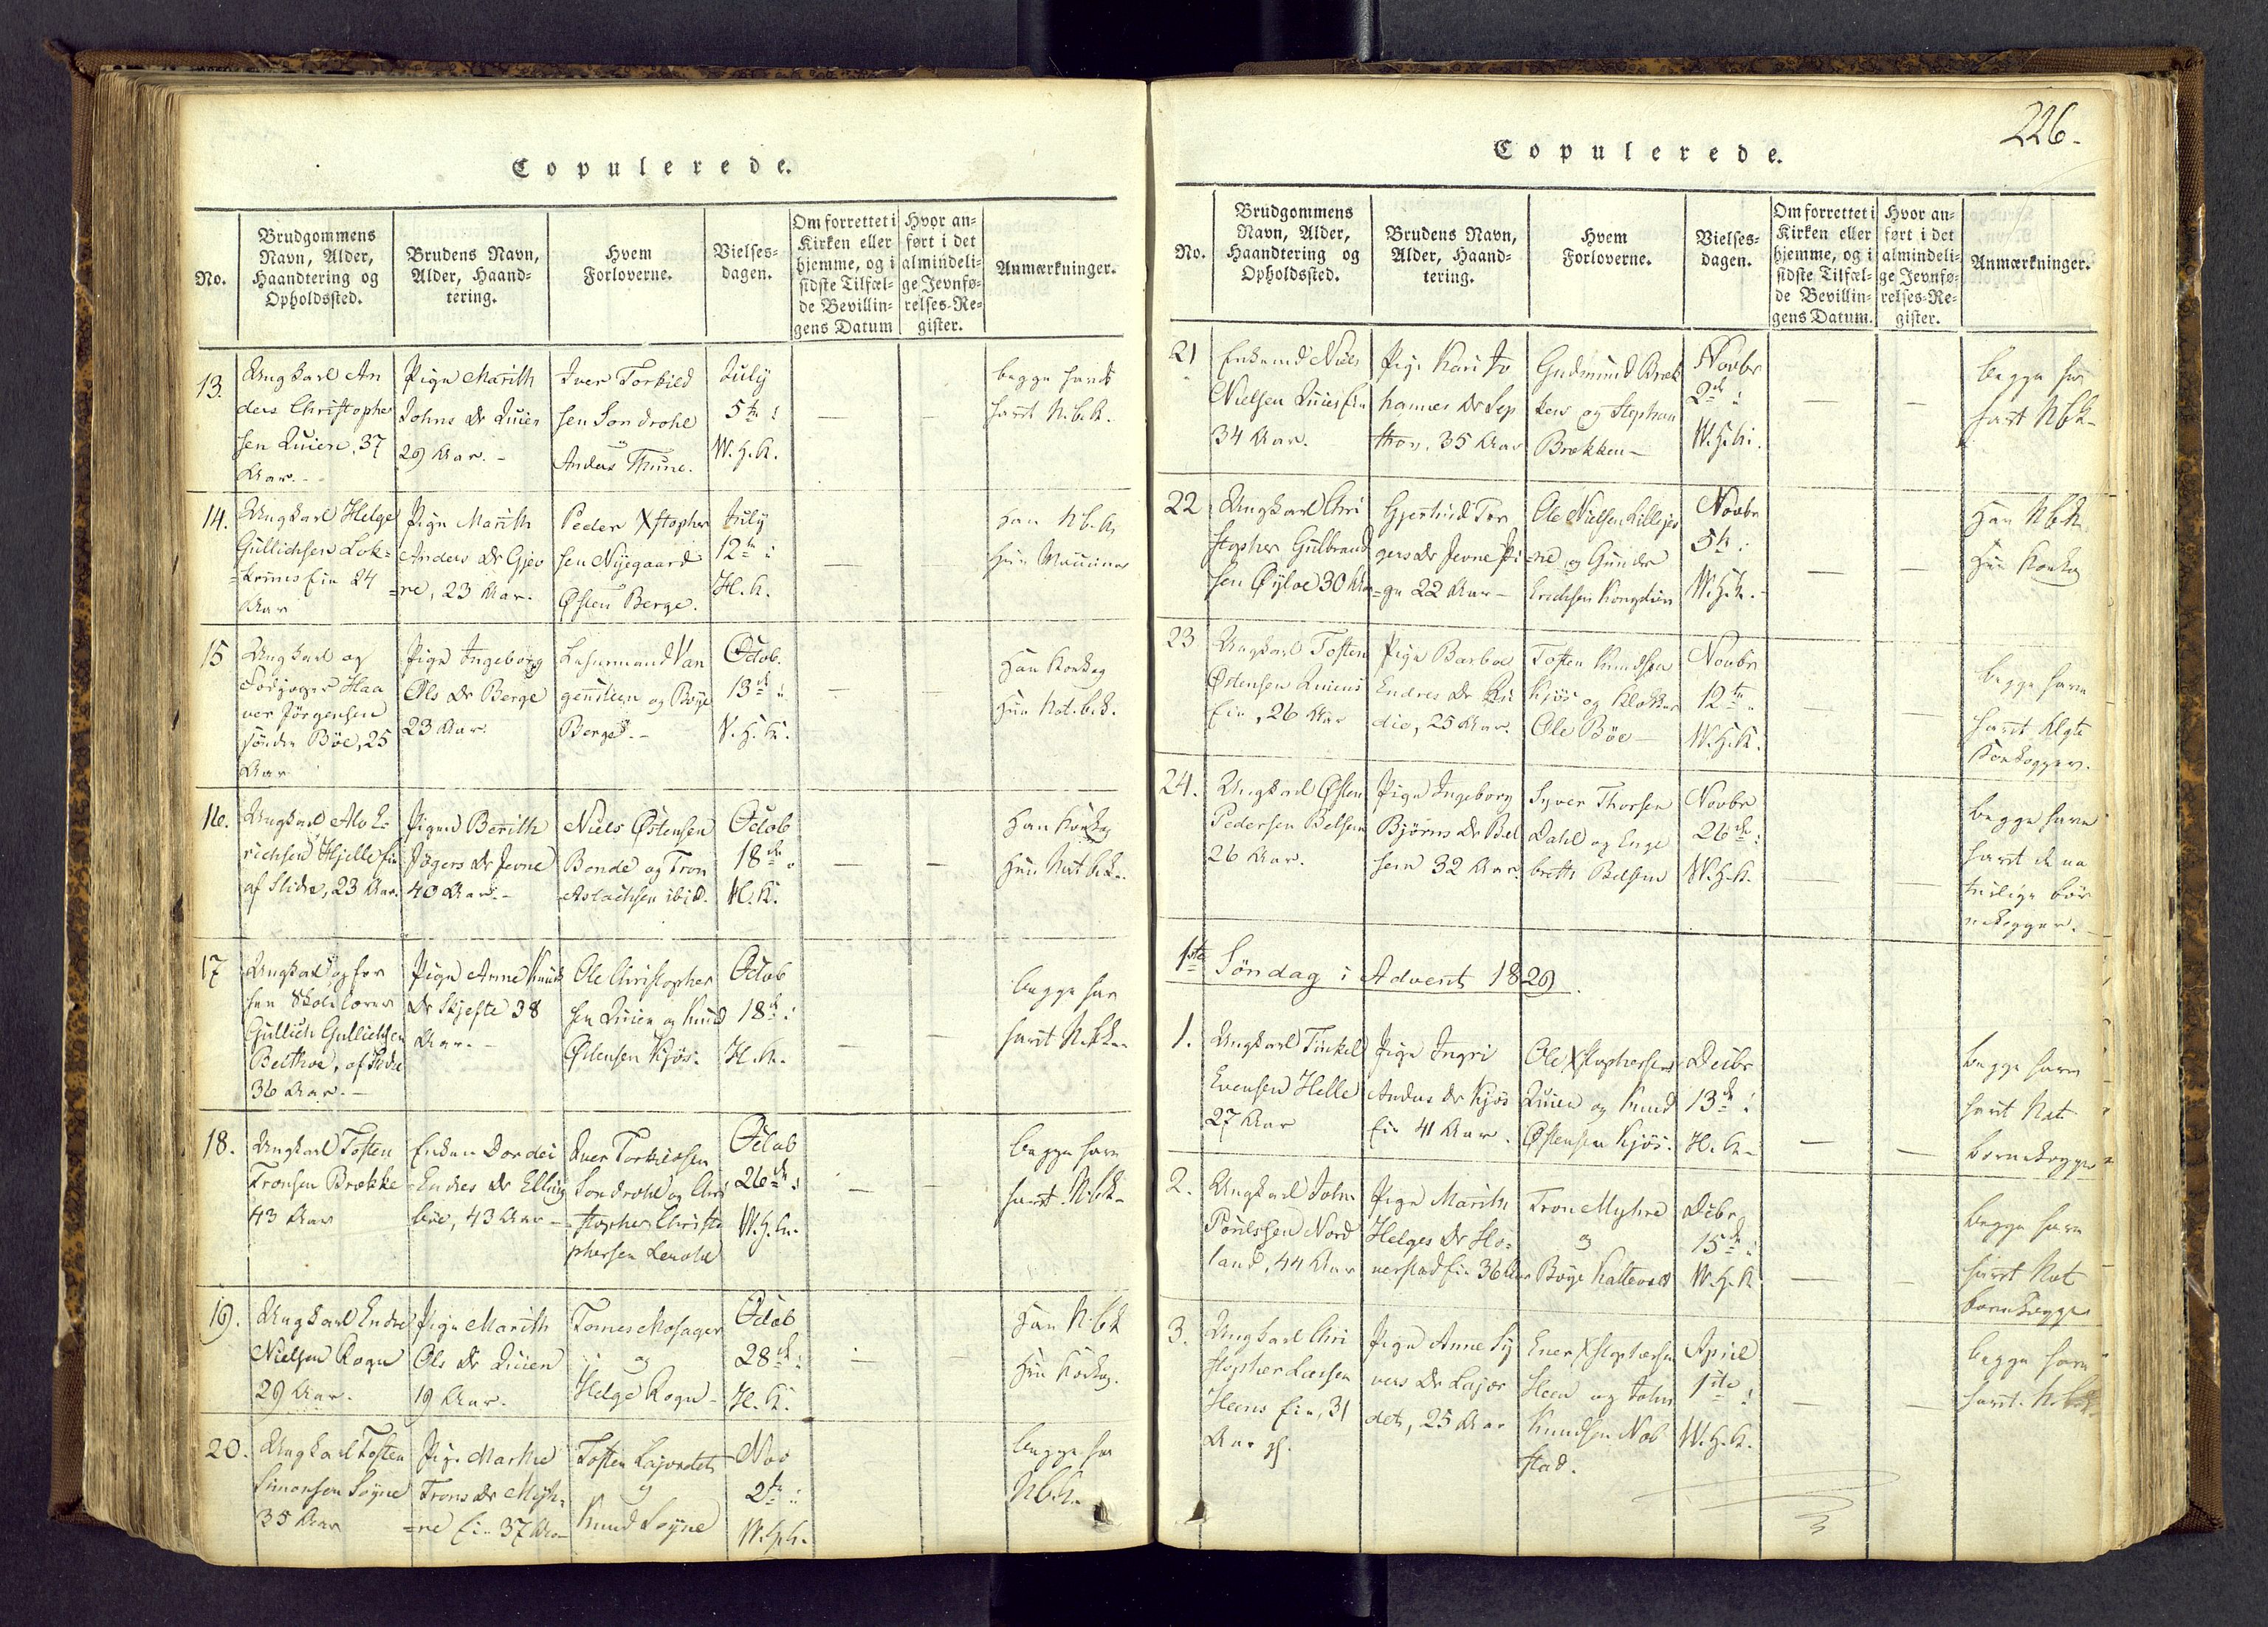 Copulerede.
No.
Brudgommens
Navn, Alder,
Haandtering og
Opholdssted.
Brudens Navn,
Alder, Haand-
tering.
Hvem
Forloverne.
Vielses-
dagen.
Om forrettet i
Kirken eller
hjemme, og i
sidste Tilfæl-
de Bevillin-
gens Datum
Hvor an-
ført i det
almindeli-
ge Jevnfø-
relses-Re-
gister.
Anmærkninger.
13.
Ungkarl An
ders Christopher
sen Quien, 37
Aar. -
Pigen Marith
Johns Dr Quien
29 Aar. -
Iver Torkild
sen Sondrohl
og
Anders Thune.
July
5te :
W. H. K.
begge havde
havt N. b. K.
14.
Ungkarl Helge
Gullichsen Lok=
=krims Eie 24
Aar
Pige Marith
Anders Dr Gjev
=re, 23 Aar.
Peder Xstopher
sen Nyegaard
og
Østen Berge.
July
12te :
H. K.
Han N. b. K.
Hun
15
Ungkarl og
Haa
vor Jörgensen
søndre Böe, 25
Aar
Pige Ingeborg
Ols Dr Berge
23 Aar.
Lehnsmand Van
gensteen og Boye
Berge. -
Octob.
13de :
V. H. K.
Han Kokop
Hun Nat. b. k.
16.
Ungkarl Alv E=
richsen Hjelle Eie
af Slidre, 23 Aar.
Pigen Berith
Jögers Dr Jevne
40 Aar. -
Niels Østensen
Bonde og Tron
Aslachsen ibid.
Octob
18de
H. K.
Han Kokop
Hun Nat. b. k.
17
Ungkarl og for
hen Skolelærer
Gullich Gullichsen
Belthoe, af Slidre
36 Aar. -
Pige Anne Knuds
Dr Skjefte 38
Aar. -
Ole Christopher
sen Quien og Knud
Østensen Kjös.
Octob
18de :
H. K.
begge har
havt N. b. k.
18.
Ungkarl Tosten
Tronsen Brekke
43 Aar
Enken Dordei
Endres Dr Elling
böe, 43 Aar -
Iver Torkildsen
Sondrohl og Chri
stopher Christo
phersen Lerohl
Octob
26de :
W. H. K.
begge have
havt N. b. k.
19.
Ungkarl Endre
Nielsen Rogn
29 Aar.
Pige Marith
Ols Dr Quien
19 Aar.
Tomes Mosager
og
Helge Rogn -
Octob
28de :
H. K.
Han N. b. k
Hun Kokop.
20.
Ungkarl Tosten
Simonsen Søyne
35 Aar
Pige Marthe
Trons Dr Myh=
=re Eie 37 Aar
Tosten Lajordet
og
Knud Søyne
Nov
2de :
W. H. K.
begge har
N. b. K.
226.
Copulerede.
No.
Brudgommens
Navn, Alder,
Haandtering og
Opholdssted.
Brudens Navn,
Alder, Haand-
tering.
Hvem
Forloverne.
Vielses-
dagen.
Om forrettet i
Kirken eller
hjemme, og i
sidste Tilfæl-
de Bevillin-
gens Datum.
Hvor an-
ført i det
almindeli-
ge Jevnfø-
relses-Re-
gister.
Anmærkninger.
21
Enkemd Niels
Nielsen Quies Eie
34 Aar.
Pige Kari Jo
hannes Dr Sep
thov. 35 Aar
Gudmund Bræk
ken og Stephan
Brækken -
Novbr
2de :
W. H. K.
begge har
havt N. b. K.
22
Ungkarl Chri
stopher Gulbrand
sen Øyloe 30 Aar
Gjertrud Tor
gers Dr Jevne Pi
=ge 22 Aar -
Ole Nielsen Lillejev
=ne og Gunder
Erichsen
Novbr
5te :
W. H. K.
Han N. b. K.
Hun Kokop
23
Ungkarl Tosten
Østensen Quiens
Eie, 26 Aar
Pige Barbro
Endres Dr
die, 25 Aar.
Tosten Knudsen
Kjös og Klokker
Ole Böe -
Novbr
12te :
W. H. K.
begge have
havt Ægte
Kokopper.
24.
Ungkarl Østen
Pedersen Belsem
26 Aar.
Pige Ingeborg
Björns Dr Bel
sem 32 Aar.
Syver Thorsen
Dahl og Enge
breth Belsem
Novbr
26de :
W. H. K.
begge have
havt de na
turlige Bör
nekopper.
1ste Söndag i Advent 1829.
1.
Ungkarl Tinkel
Evensen Helle
27 Aar
Pige Ingri
Anders Dr Kjös
Eie 41 Aar.
Ole Xstophersen
Quien og Knud
Østensen Kjös.
Decbr
13de :
H. K.
begge have
havt Nat
bornekopper
2.
Ungkarl John
Poulssen Nord
land, 44 Aar
Pige Marith
Helges Dr Ho=
verstad Eie 36 Aar
Tron Myhre
og
Boye Kattevold
Dcbr
15de :
W. H. K
begge have
havt Nat
bornekopper
3.
Ungkarl Chri
stopher Larsen
Heens Eie, 31
Aar gl.
Pige Anne Sy
vers Dr Lajor
det, 25 Aar
Ener Xstophersen
Heen og John
Knudsen Nob
stad.
April
1ste :
W. H. K.
begge have
havt. N. b. K.